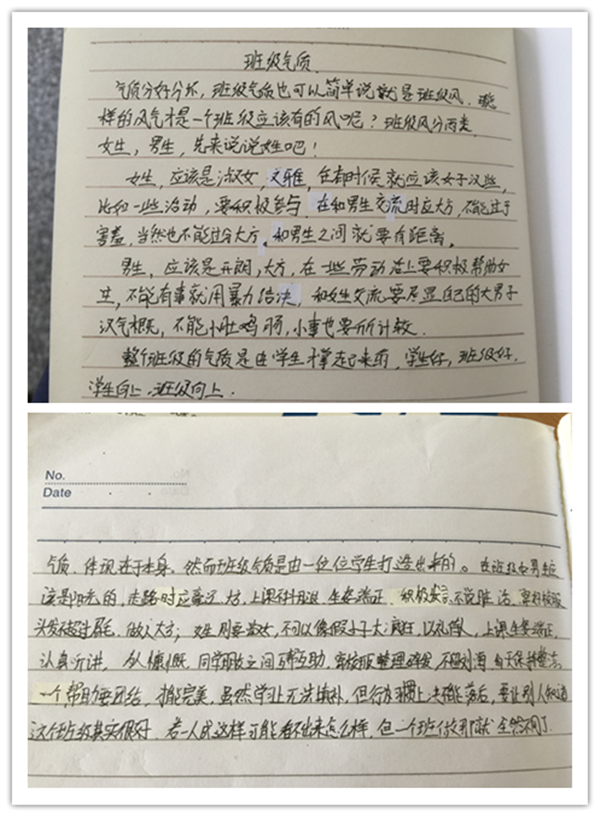 班级气质
气质分好分坏，班级气质也可以简单说就是班级风，
样的风气才是一个班级应该有的风呢？班级风分两类，
女生，男生，先来说说女生吧！
女生，应该是淑女，文雅，在有时候就应该女子汉些，
比如一些活动，要积极参与，在和男生交流时应大方，不能过于
害羞，当然也不能过分大方，和男生之间就要有距离。
男生，应该是开朗，大方，在一些劳动活上要积极帮助女
生，不能有事就用暴力结决，和女生交流要尽显自己的大男子
汉气概，不能小肚鸡肠，小事也要斤斤计较。
整个班级的气质是由学生才掌起来的，学生好，班级好，
学生向上，班级向上。
No.
Date
气质，体现在于本身。然而班级气质是由一位位学生打造出来的。在班级中男生应
该是阳光的，走路时应 大方，上课不 ，坐姿端正，积极发言，不说脏话，穿好校服
头发不超过眉毛，做人大方；女生则要淑女，不可以像假小子大 ，以礼待人，上课坐姿端正，
认真听讲，为人慷慨，同学朋友之间互帮互助，穿校服整理 ，不留刘海，每天保持整洁。
一个 要团结，才能完美，虽然学业上无法填补，但行为习惯上决不能落后，要让别人知道
这个班级其实很好，若一人成这样可能看不出来怎么样，但一个班做到那就全然不同了。